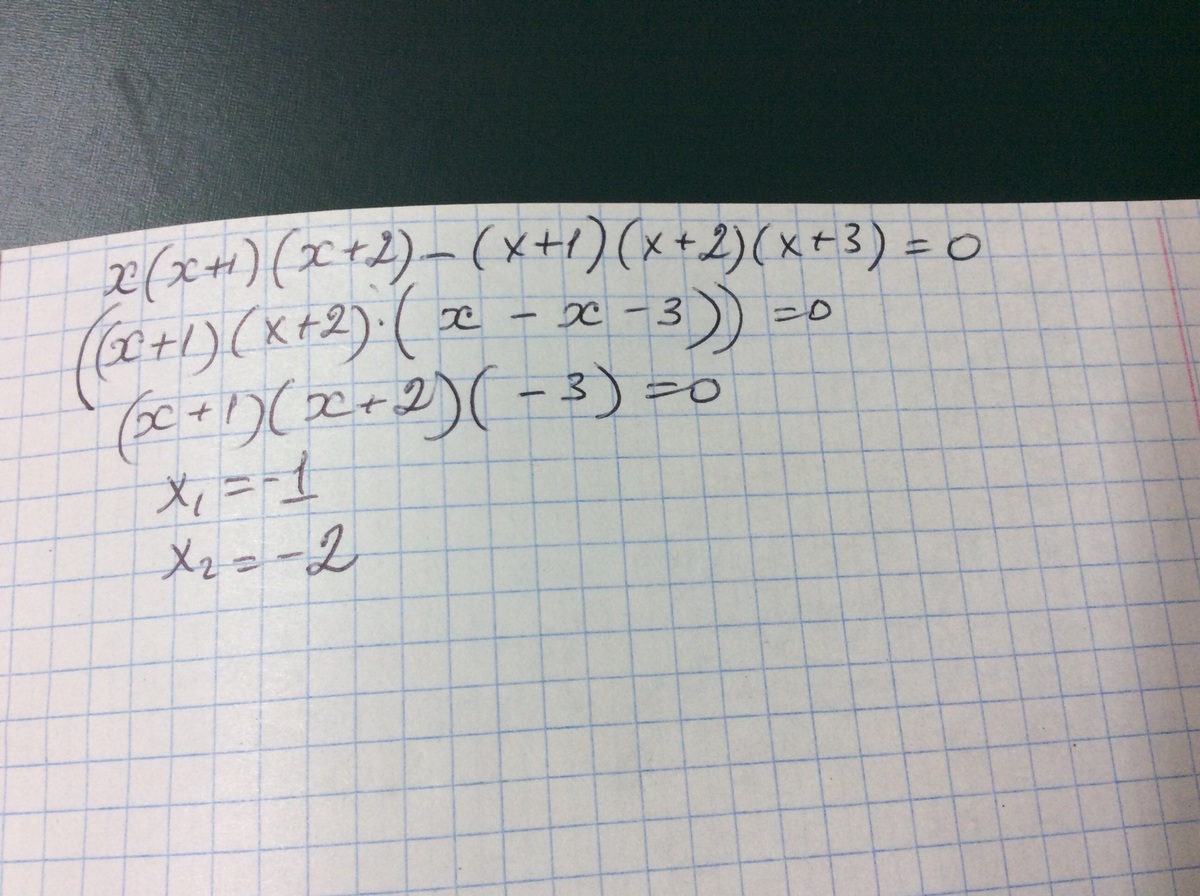 x(x+1)(x+2)-(x+1)(x+2)(x+3)=0
((x+1)(x+2)·(x-x-3))=0
(x+1)(x+2)(-3)=0
x₁=-1
x₂=-2